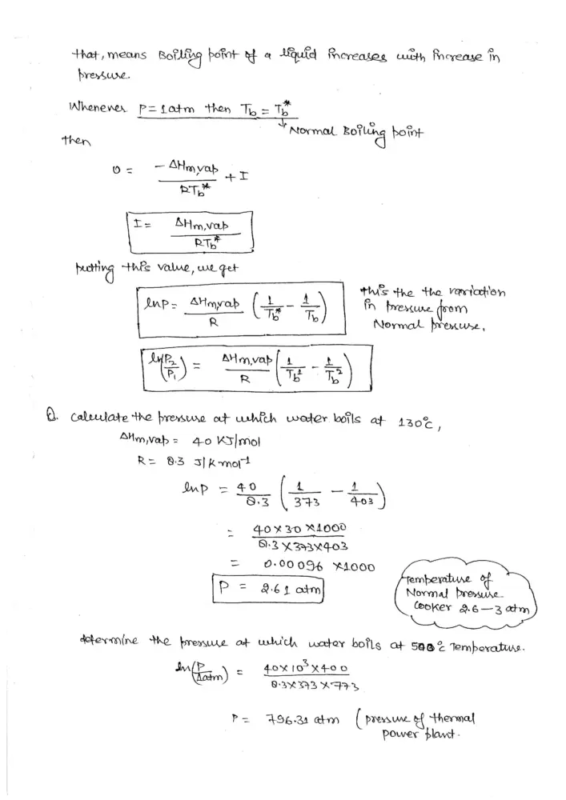 that, means Boiling point of a liquid increases with increase in
pressure.
Whenever P = 1 atm then Tb = Tb*
↓ Normal Boiling point
then
0 = -ΔHm,vap / RTb* + I
I = ΔHm,vap / RTb*
putting this value, we get
lnP = ΔHm,vap / R (1/Tb* - 1/Tb)
this the the variation
in pressure from
Normal pressure.
ln(P2/P1) = ΔHm,vap / R (1/Tb1 - 1/Tb2)
Q. calculate the pressure at which water boils at 130°c,
ΔHm,vap = 40 KJ/mol
R = 8.3 J/k mol-1
lnP = 40/8.3 (1/373 - 1/403)
= 40 X 30 X 1000 / 8.3 X 373 X 403
= 0.00096 X 1000
P = 2.61 atm
Temperature of
Normal pressure
Cooker 2.6 — 3 atm
determine the pressure at which water boils at 500°c Temperature.
ln(P/1atm) = 40 X 10³ X 400 / 8.3 X 373 X 773
P = 796.31 atm (pressure of thermal
power plant.